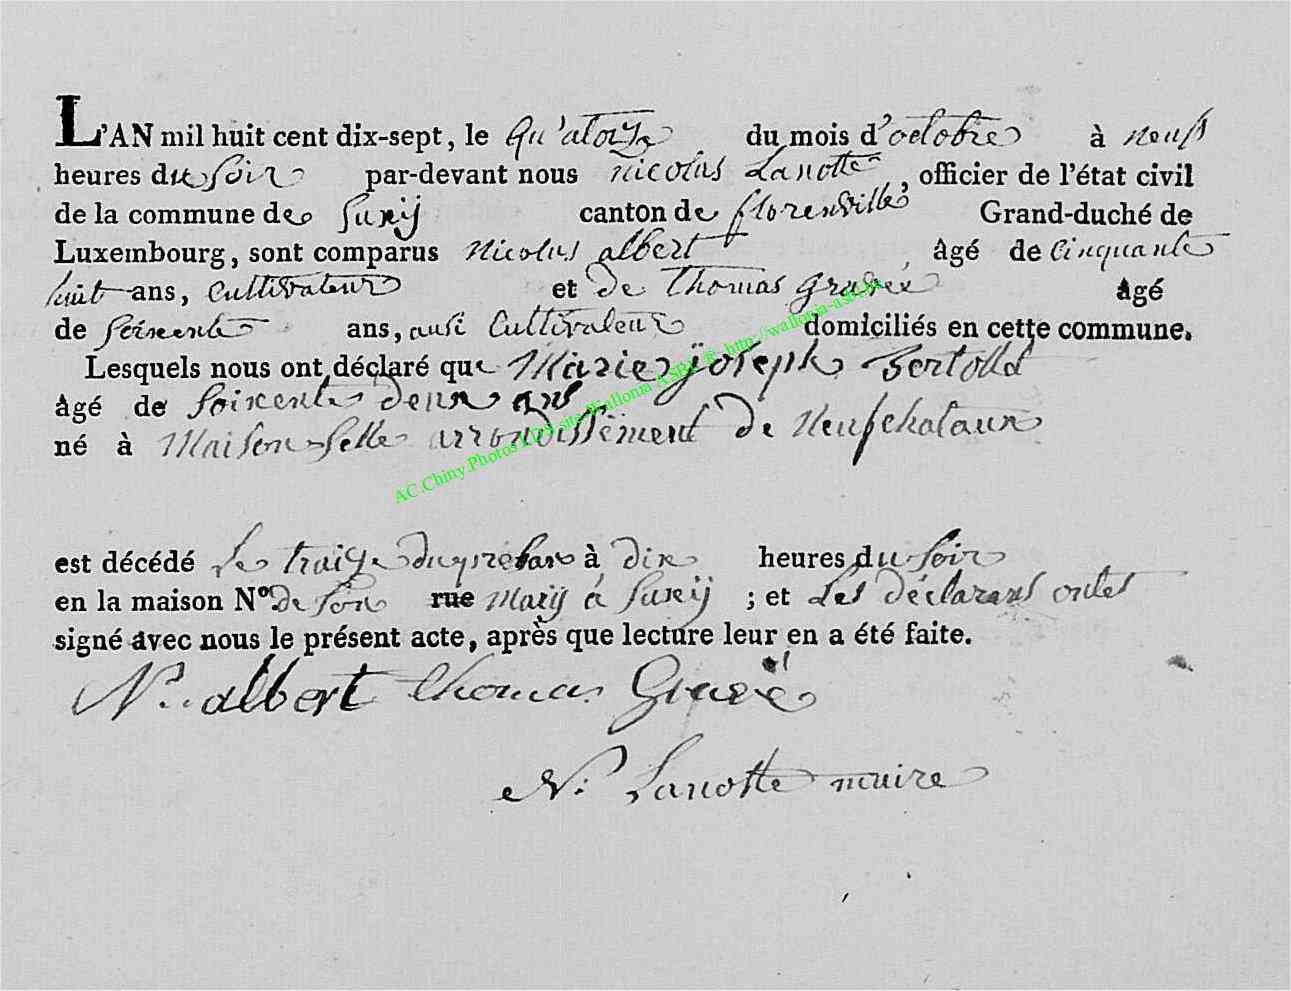 L'AN mil huit cent dix-sept, le Qu'atorze du mois d'octobre à neuf
heures du soir par-devant nous nicolas Lanotte, officier de l'état civil
de la commune de Suxij canton de florenville Grand-duché de
Luxembourg, sont comparus Nicolas albert, âgé de Cinquante
huit ans, Cultivateur et de Thomas Gravée âgé
de Soixente ans, ausi Cultivateur domiciliés en cette commune.
Lesquels nous ont déclaré que Marie joseph
âgé de Soixente deux ans
né à Maison-Selle arrondissement de Neufchataux
est décédé Le traize du à dix heures du Soir
en la maison Nº de Son rue Marij à Suxij ; et Les déclarans ontet
signé avec nous le présent acte, après que lecture leur en a été faite.
N. albert thomas
N. Lanotte maire
AC.Chiny.Photos site Wallonia ASBL http://wallonia-asbl.be